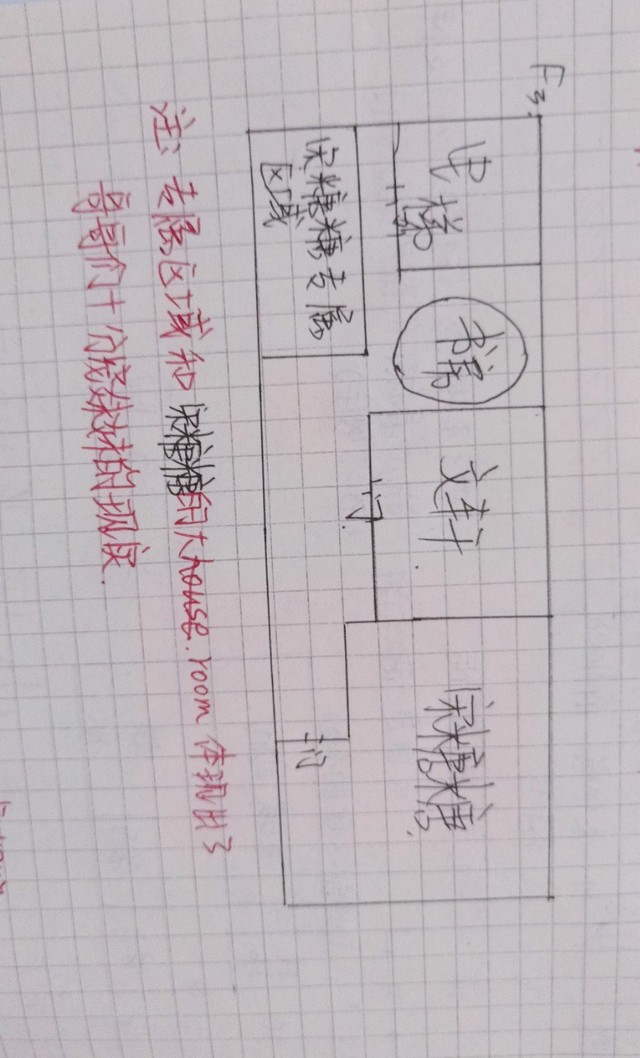 F3:
电梯
书房
文轩
门
宋糖糖
门
宋糖糖专属
区域
注:专属区域和宋糖糖的大house.room 体现出了
哥哥们十分宠妹妹的现状.